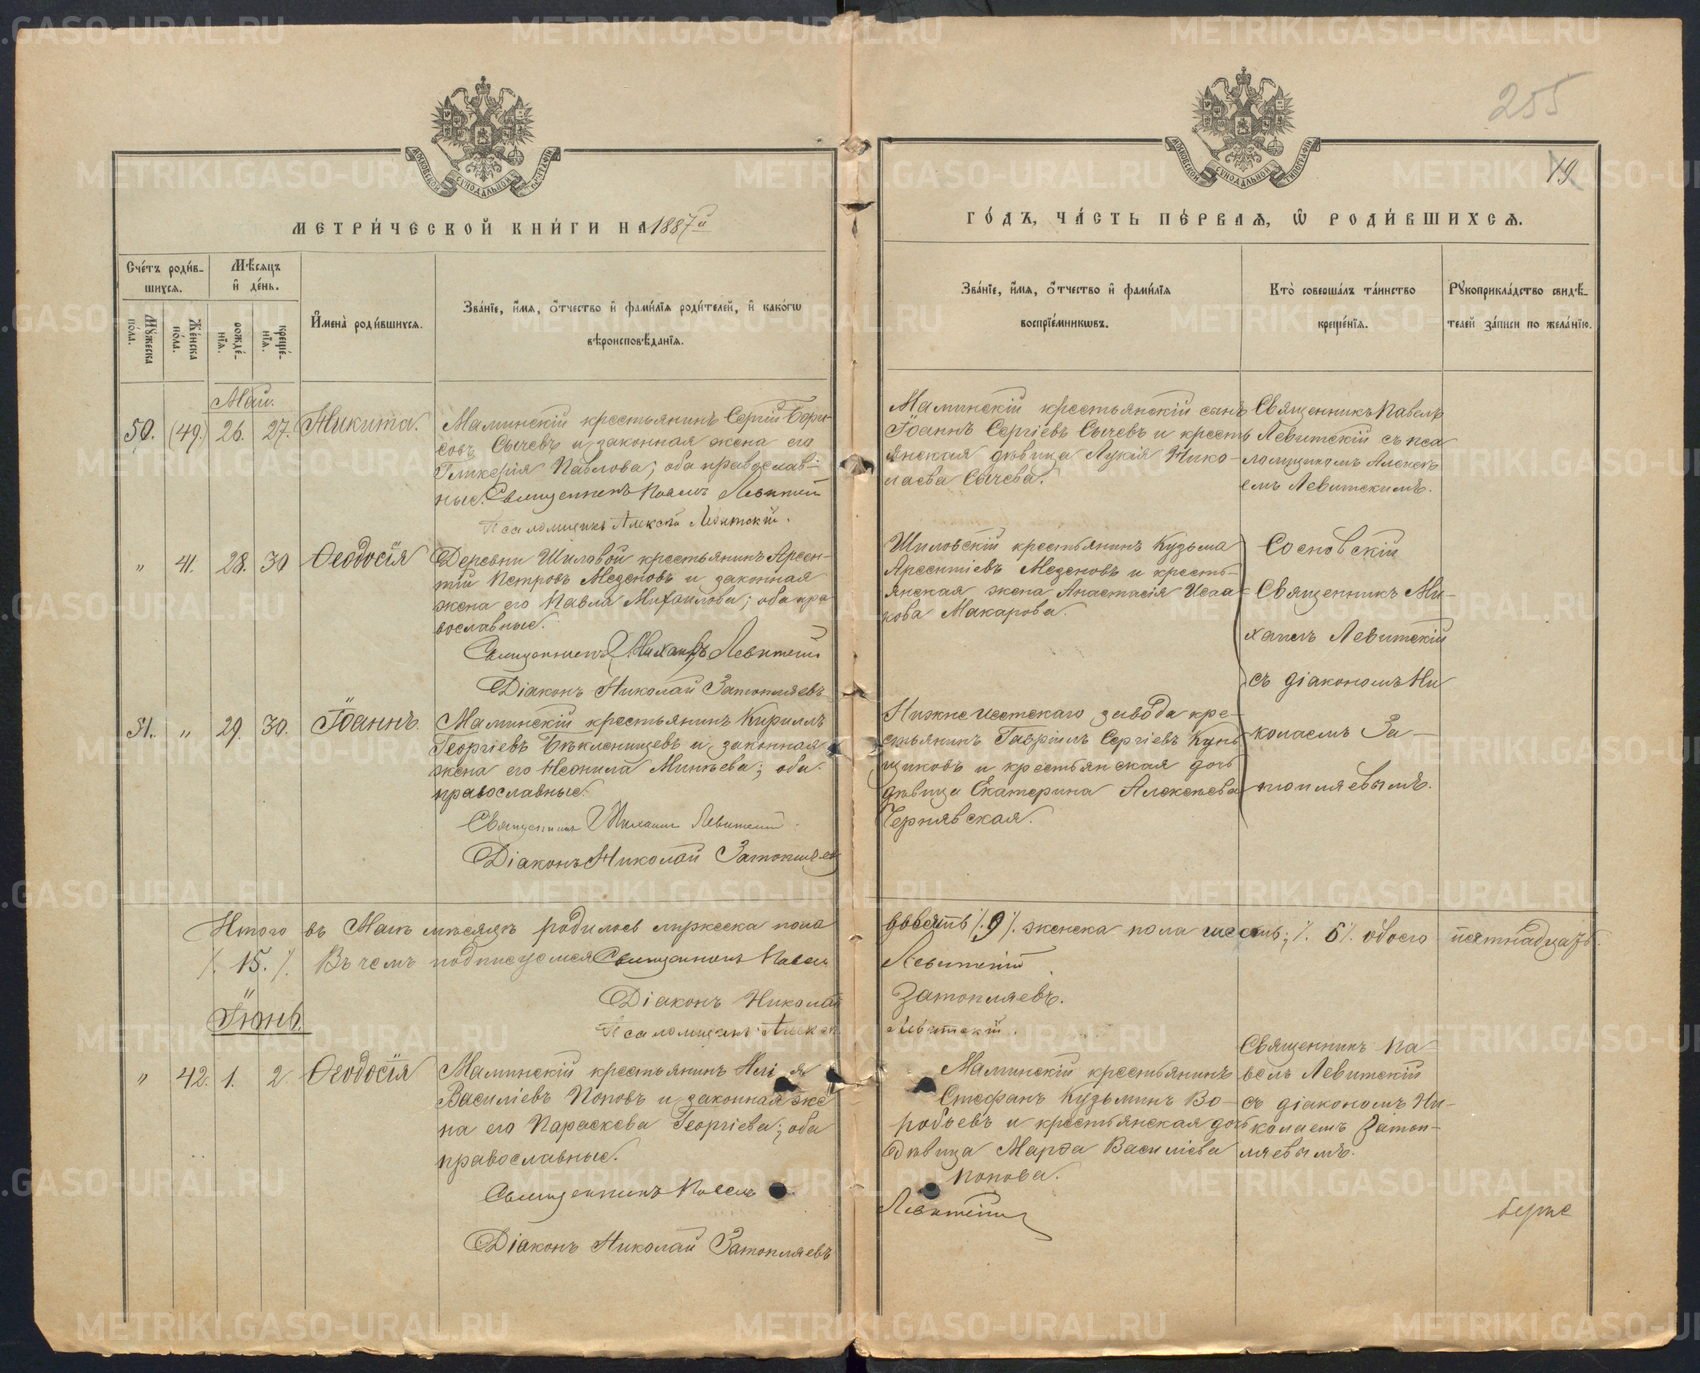 255
19
МЕТРИ́ЧЕСКОЙ КНИ́ГИ НА 1887й
ГО́ДЪ, ЧА́СТЬ ПЕ́РВАѦ, Ѡ РОДИ́ВШИХСѦ.
Сче́тъ роди́в-
шихсѧ.
Мѣ́сѧцъ
и҆ де́нь.
Мꙋ́жеска по́ла.
Же́нска по́ла.
рожде́-нїѧ.
креще́-нїѧ.
И҆мена̀ роди́вшихсѧ.
Зва́нїе, и҆́мѧ, ѻ҆́тчество и҆ фами́лїѧ роди́телей, и҆ како́гѡ
вѣроисповѣ́данїѧ.
Зва́нїе, и҆́мѧ, ѻ҆́тчество и҆ фами́лїѧ
воспрїе́мникѡвъ.
Кто̀ соверша́лъ та́инство
креще́нїѧ.
Рꙋкоприкла́дство свидѣ́-
телей за́писи по жела́нїю.
Май.
50. (49.) 26. 27. Никита.
Маминскій крестьянинъ Сергій Бори-
совъ Сычевъ и законная жена его
Гликерія Павлова; оба православ-
ные. Священникъ Павелъ Левитскій
Псаломщикъ Алексѣй Левитскій.
Маминскій крестьянскій сынъ
Іоаннъ Сергіевъ Сычевъ и кресть
янская дѣвица Лукія Нико-
лаева Сычева.
Священникъ Павелъ
Левитскій съ пса
ломщикомъ Алексѣ
емъ Левитскимъ.
" 41. 28. 30 Ѳеодосія
Деревни Шиловой крестьянинъ Арсен-
тій Петровъ Меденовъ и законная
жена его Павла Михайлова; оба пра
вославные.
Священникъ Михаилъ Левитскій
Діаконъ Николай Затопляевъ
Шиловскій крестьянинъ Кузьма
Арсентіевъ Меденовъ и кресть-
янская жена Анастасія Исаа-
кова Макарова.
Сосновскій
Священникъ Ми-
хаилъ Левитскій
съ діакономъ Ни
колаемъ За-
топляевымъ.
51. " 29. 30. Іоаннъ.
Маминскій крестьянинъ Кириллъ
Георгіевъ Бѣкленищевъ и законная
жена его Неонила Минѣева; оба
православные.
Священникъ Михаилъ Левитскій
Діаконъ Николай Затопляевъ
Нижне Исетскаго завода кре-
стьянинъ Гавріилъ Сергіевъ Кунь
щиковъ и крестьянская дочь
дѣвица Екатерина Алексѣева
Чернявская.
Итого въ Маѣ мѣсяцѣ родилось мужеска пола
девять /. 9 /. женска пола шесть; /. 6 /. обоего пятнадцать
/. 15. /. Въ чемъ подписуемся Священникъ Павелъ
Левитскій
Діаконъ Николай
Затопляевъ.
Псаломщикъ Алексѣй
Левитскій.
Іюнь.
" 42. 1. 2 Ѳеодосія
Маминскій крестьянинъ Илія
Василіевъ Поповъ и законная же
на его Параскева Георгіева; оба
православные.
Священникъ Павелъ
Левитскій
Діаконъ Николай Затопляевъ
Маминскій крестьянинъ
Стефанъ Кузьминъ Во-
робьевъ и крестьянская дочь
дѣвица Марѳа Василіева
Попова.
Священникъ Па-
велъ Левитскій
съ діакономъ Ни-
колаемъ Затоп-
ляевымъ.
METRIKI.GASO-URAL.RU